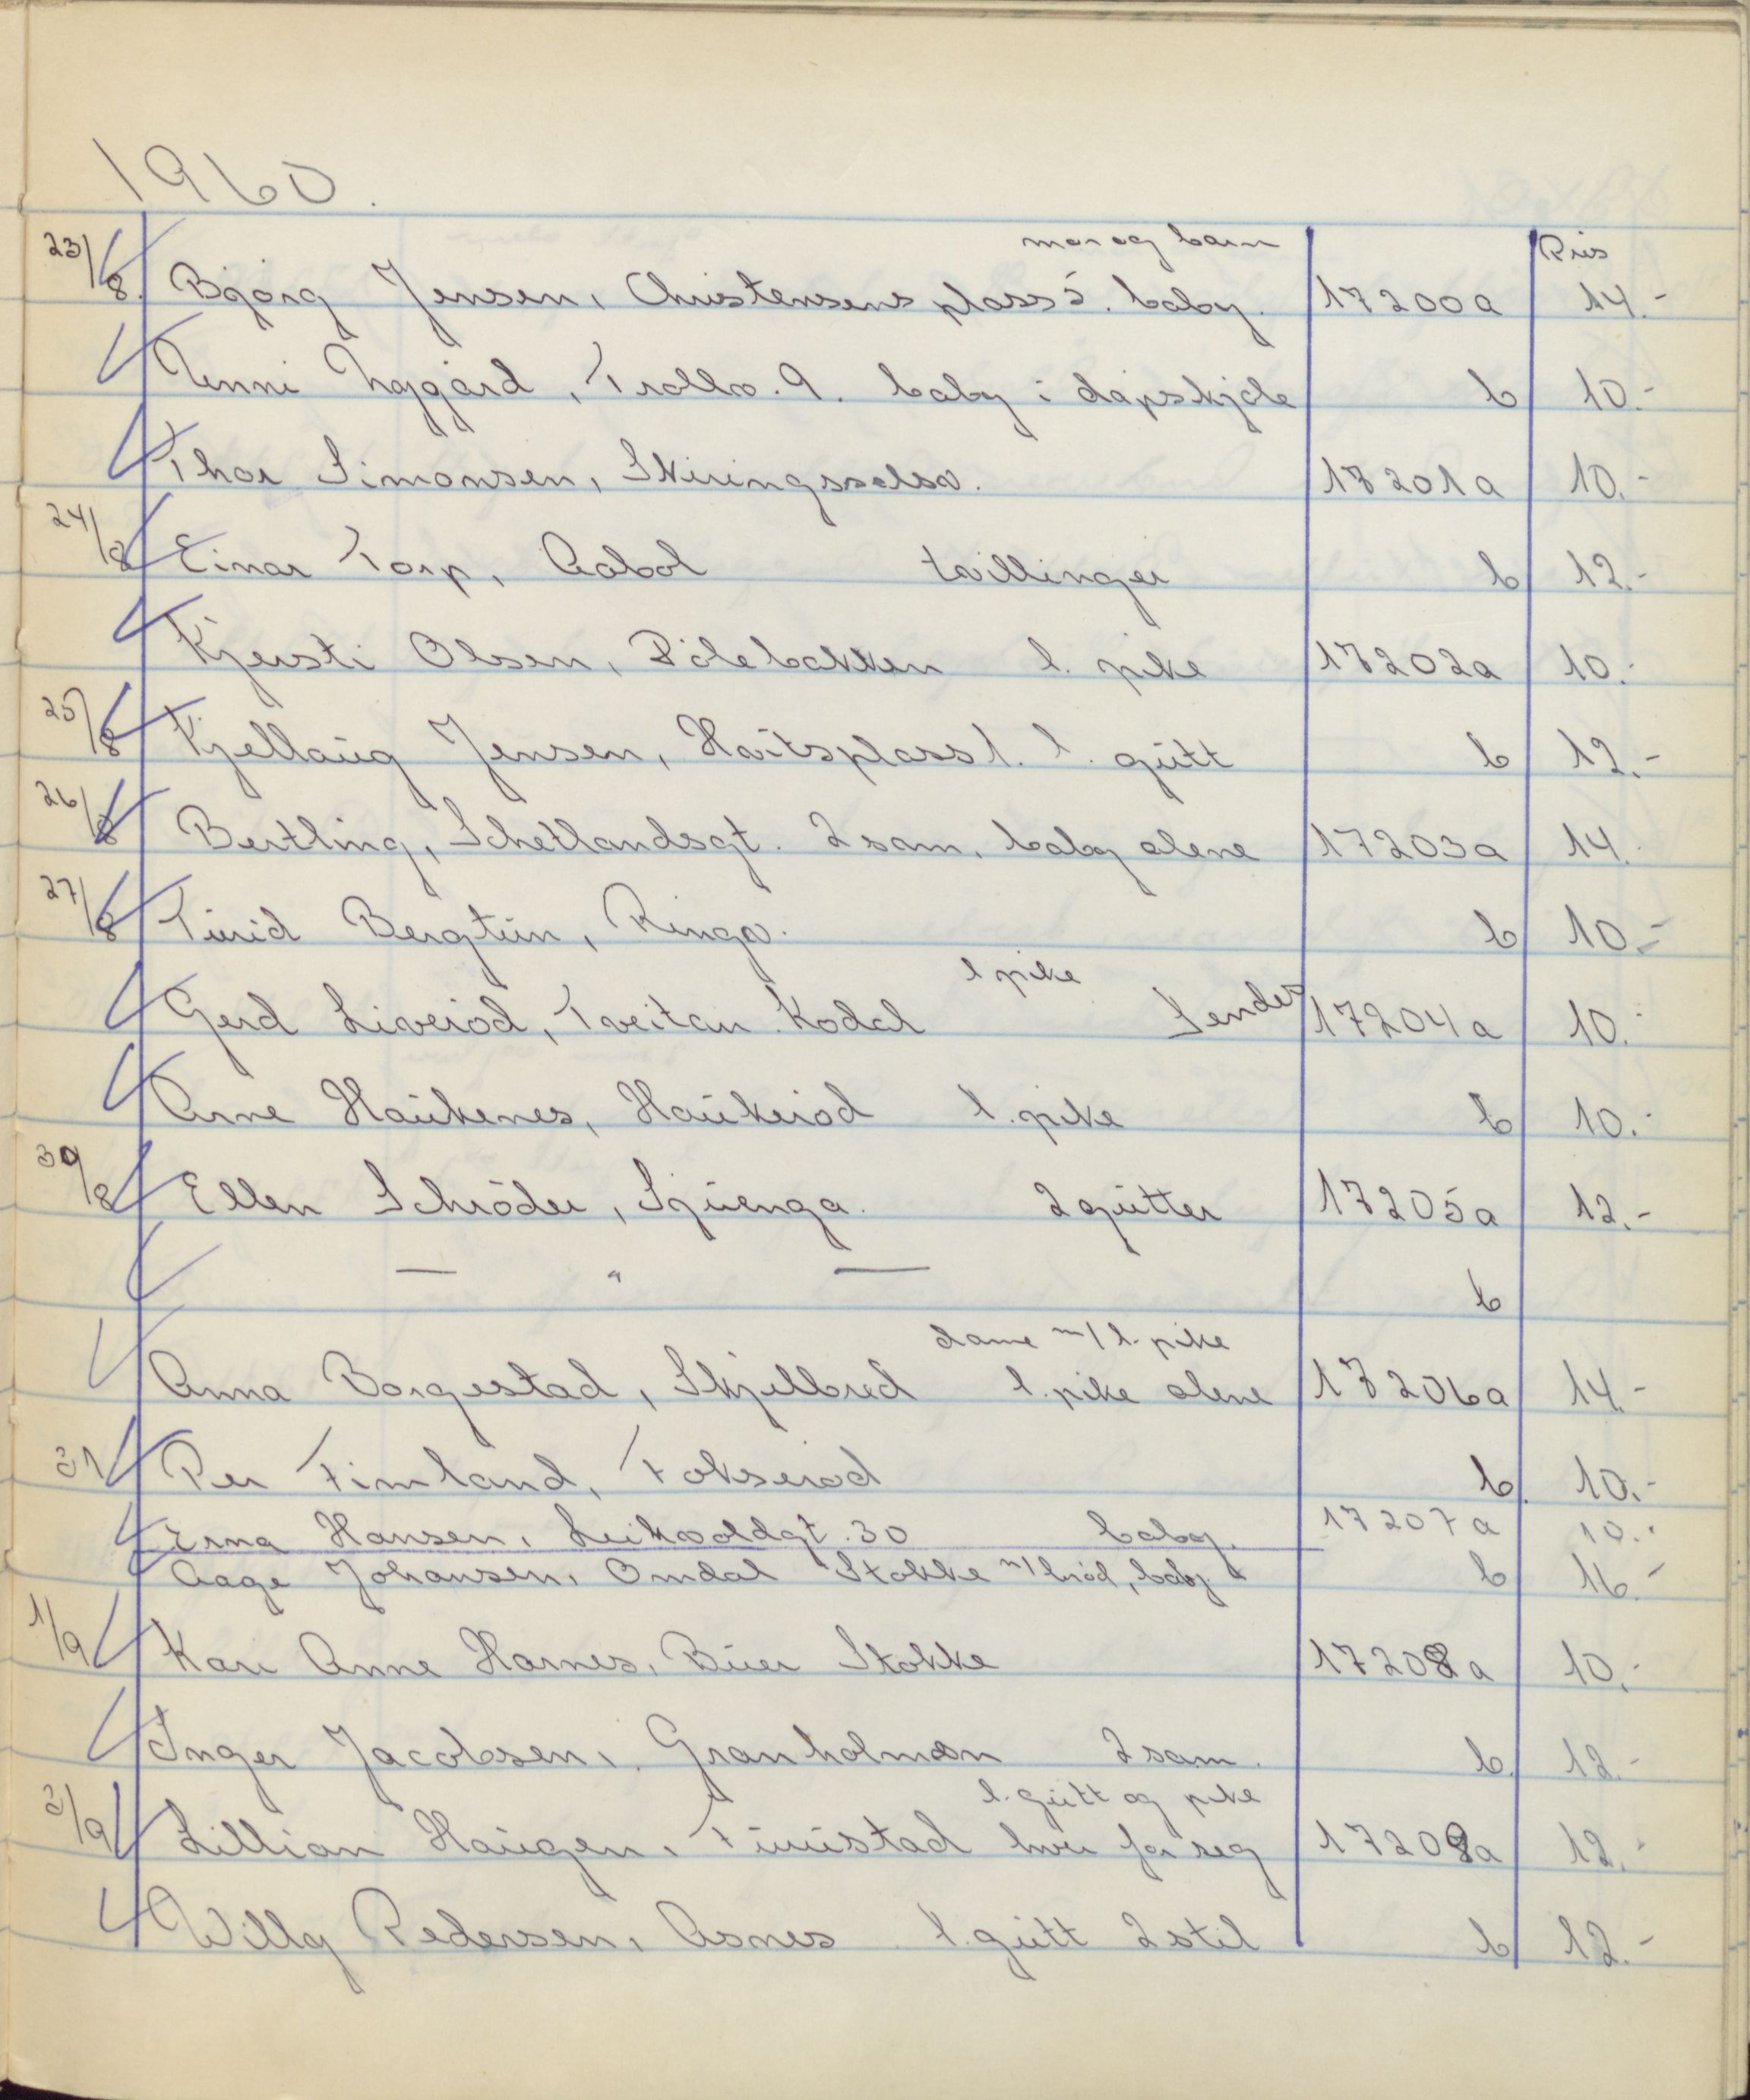 1960.
mor og barn Pris
23/8. Bjørg Jensen, Christensens plass 5. baby. 17200a 14.-
Unni Nygård, Trollv. 9. baby i dåpskjole b 10.-
Thor Simonsen, Skiringssalsv. 17201a 10.-
24/8 Einar Torp, Aabol tvillinger b 12.-
Kjersti Olsen, Bølebakken l. pike 17202a 10.-
25/8 Kjellaug Jensen, Havtsplass 1. l. gutt b 12.-
26/8 Bertling, Schetlandsgt. 2 sam. baby alene 17203a 14.
27/8 Turid Bergtun, Ringv. b 10.-
l pike
Gerd Liverød, Tveitan Kodal Sendes 17204a 10.-
Arne Haukenes, Haukerød l. pike b 10.-
30/8 Ellen Schrøder, Sjuenga. 2 gutter 17205a 12.-
— " — b
dame m/ l. pike
Anna Borgestad, Skjellbred l. pike alene 17206a 14.-
31 Per Fimland, Fokserød b. 10.-
Erna Hansen, Leikvoldgt. 30 baby. 17207a 10.-
Aage Johansen, Omdal Stokke m/ brod, baby b 16.-
1/9 Kari Anne Harnes, Buer Stokke 17208a 10.-
Inger Jacobsen, Granholmen 2 sam. b. 12.-
l. gutt og pike
2/9 Lillian Haugen, Furustad hver for seg 17209a 12.-
Willy Pedersen, Asnes l. gutt 2 stil b 12.-